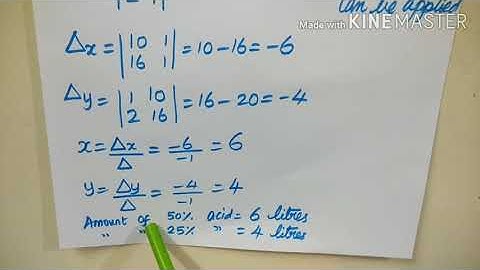 can be applied
Made with KINEMASTER
Δx = |10 1| = 10 - 16 = -6
|16 1|
Δy = |1 10| = 16 - 20 = -4
|2 16|
x = Δx/Δ = -6/-1 = 6
y = Δy/Δ = -4/-1 = 4
Amount of 50% acid = 6 litres
" " 25% " = 4 litres